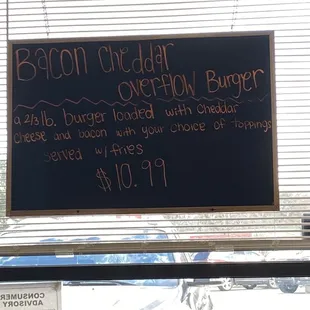 Bacon Cheddar
overflow Burger
a 2/3 lb. burger loaded with cheddar
cheese and bacon with your choice of toppings
served w/ fries
$10.99
CONSUMER
ADVISORY
CONSUMER
ADVISORY